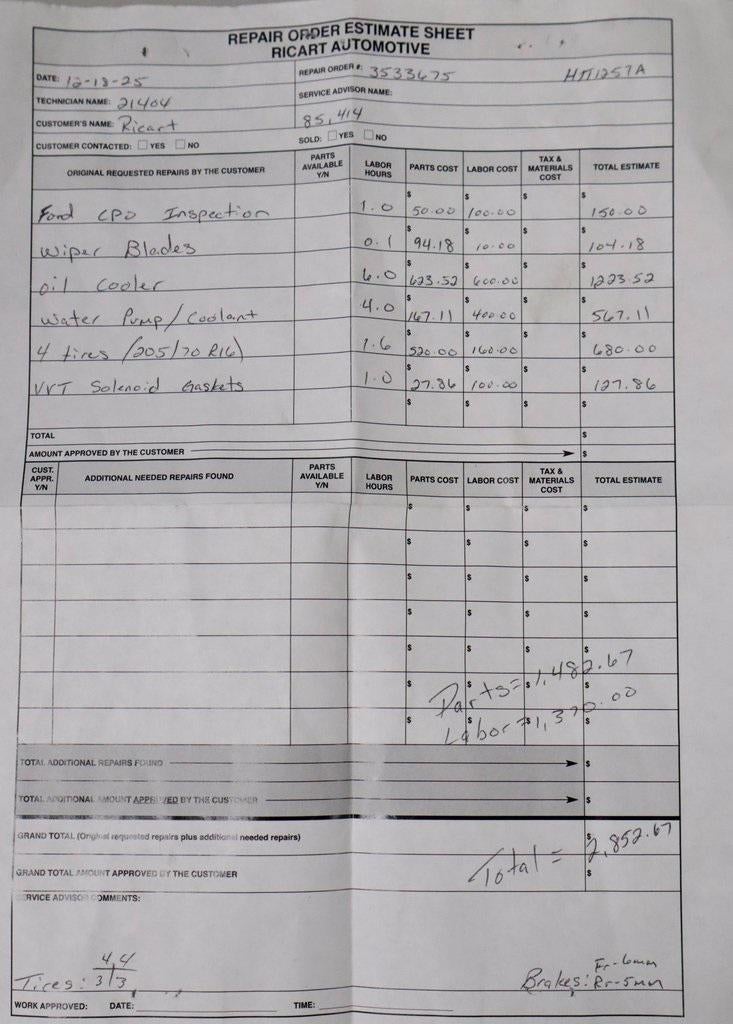 REPAIR ORDER ESTIMATE SHEET
RICART AUTOMOTIVE
DATE: 12-18-25 REPAIR ORDER #: 3533675 HTT1257A
TECHNICIAN NAME: 21404 SERVICE ADVISOR NAME:
CUSTOMER'S NAME: Ricart 85,414
CUSTOMER CONTACTED: YES NO SOLD: YES NO
ORIGINAL REQUESTED REPAIRS BY THE CUSTOMER PARTS AVAILABLE Y/N LABOR HOURS PARTS COST LABOR COST TAX & MATERIALS COST TOTAL ESTIMATE
Ford CPO Inspection 1.0 $ 50.00 $ 100.00 $ $ 150.00
Wiper Blades 0.1 $ 94.18 $ 10.00 $ $ 104.18
Oil Cooler 6.0 $ 623.52 $ 600.00 $ $ 1223.52
Water Pump/Coolant 4.0 $ 167.11 $ 400.00 $ $ 567.11
4 tires (205/70 R16) 1.6 $ 520.00 $ 160.00 $ $ 680.00
VVT Solenoid Gaskets 1.0 $ 27.86 $ 100.00 $ $ 127.86
$ $ $ $
TOTAL $
AMOUNT APPROVED BY THE CUSTOMER $
CUST. APPR. Y/N ADDITIONAL NEEDED REPAIRS FOUND PARTS AVAILABLE Y/N LABOR HOURS PARTS COST LABOR COST TAX & MATERIALS COST TOTAL ESTIMATE
$ $ $ $
$ $ $ $
$ $ $ $
$ $ $ $
$ $ $ $
$ $ $ $
Parts = 1,482.67
$ $ $ $
Labor = 1,370.00
TOTAL ADDITIONAL REPAIRS FOUND $
TOTAL ADDITIONAL AMOUNT APPROVED BY THE CUSTOMER $
GRAND TOTAL (Original requested repairs plus additional needed repairs) $
Total = 2,852.67
GRAND TOTAL AMOUNT APPROVED BY THE CUSTOMER $
SERVICE ADVISOR COMMENTS:
4 4 Fr-6mm
Tires: 3 3 Brakes: Rr-5mm
WORK APPROVED: DATE: TIME: